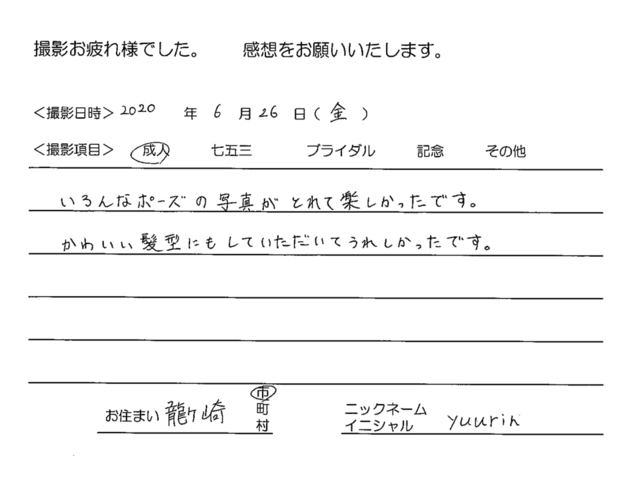 撮影お疲れ様でした。 感想をお願いいたします。
<撮影日時> 2020 年 6 月 26 日 ( 金 )
<撮影項目> 成人 七五三 ブライダル 記念 その他
いろんなポーズの写真がとれて楽しかったです。
かわいい髪型にもしていただいてうれしかったです。
お住まい 龍ヶ崎 市
町
村
ニックネーム
イニシャル yuurin